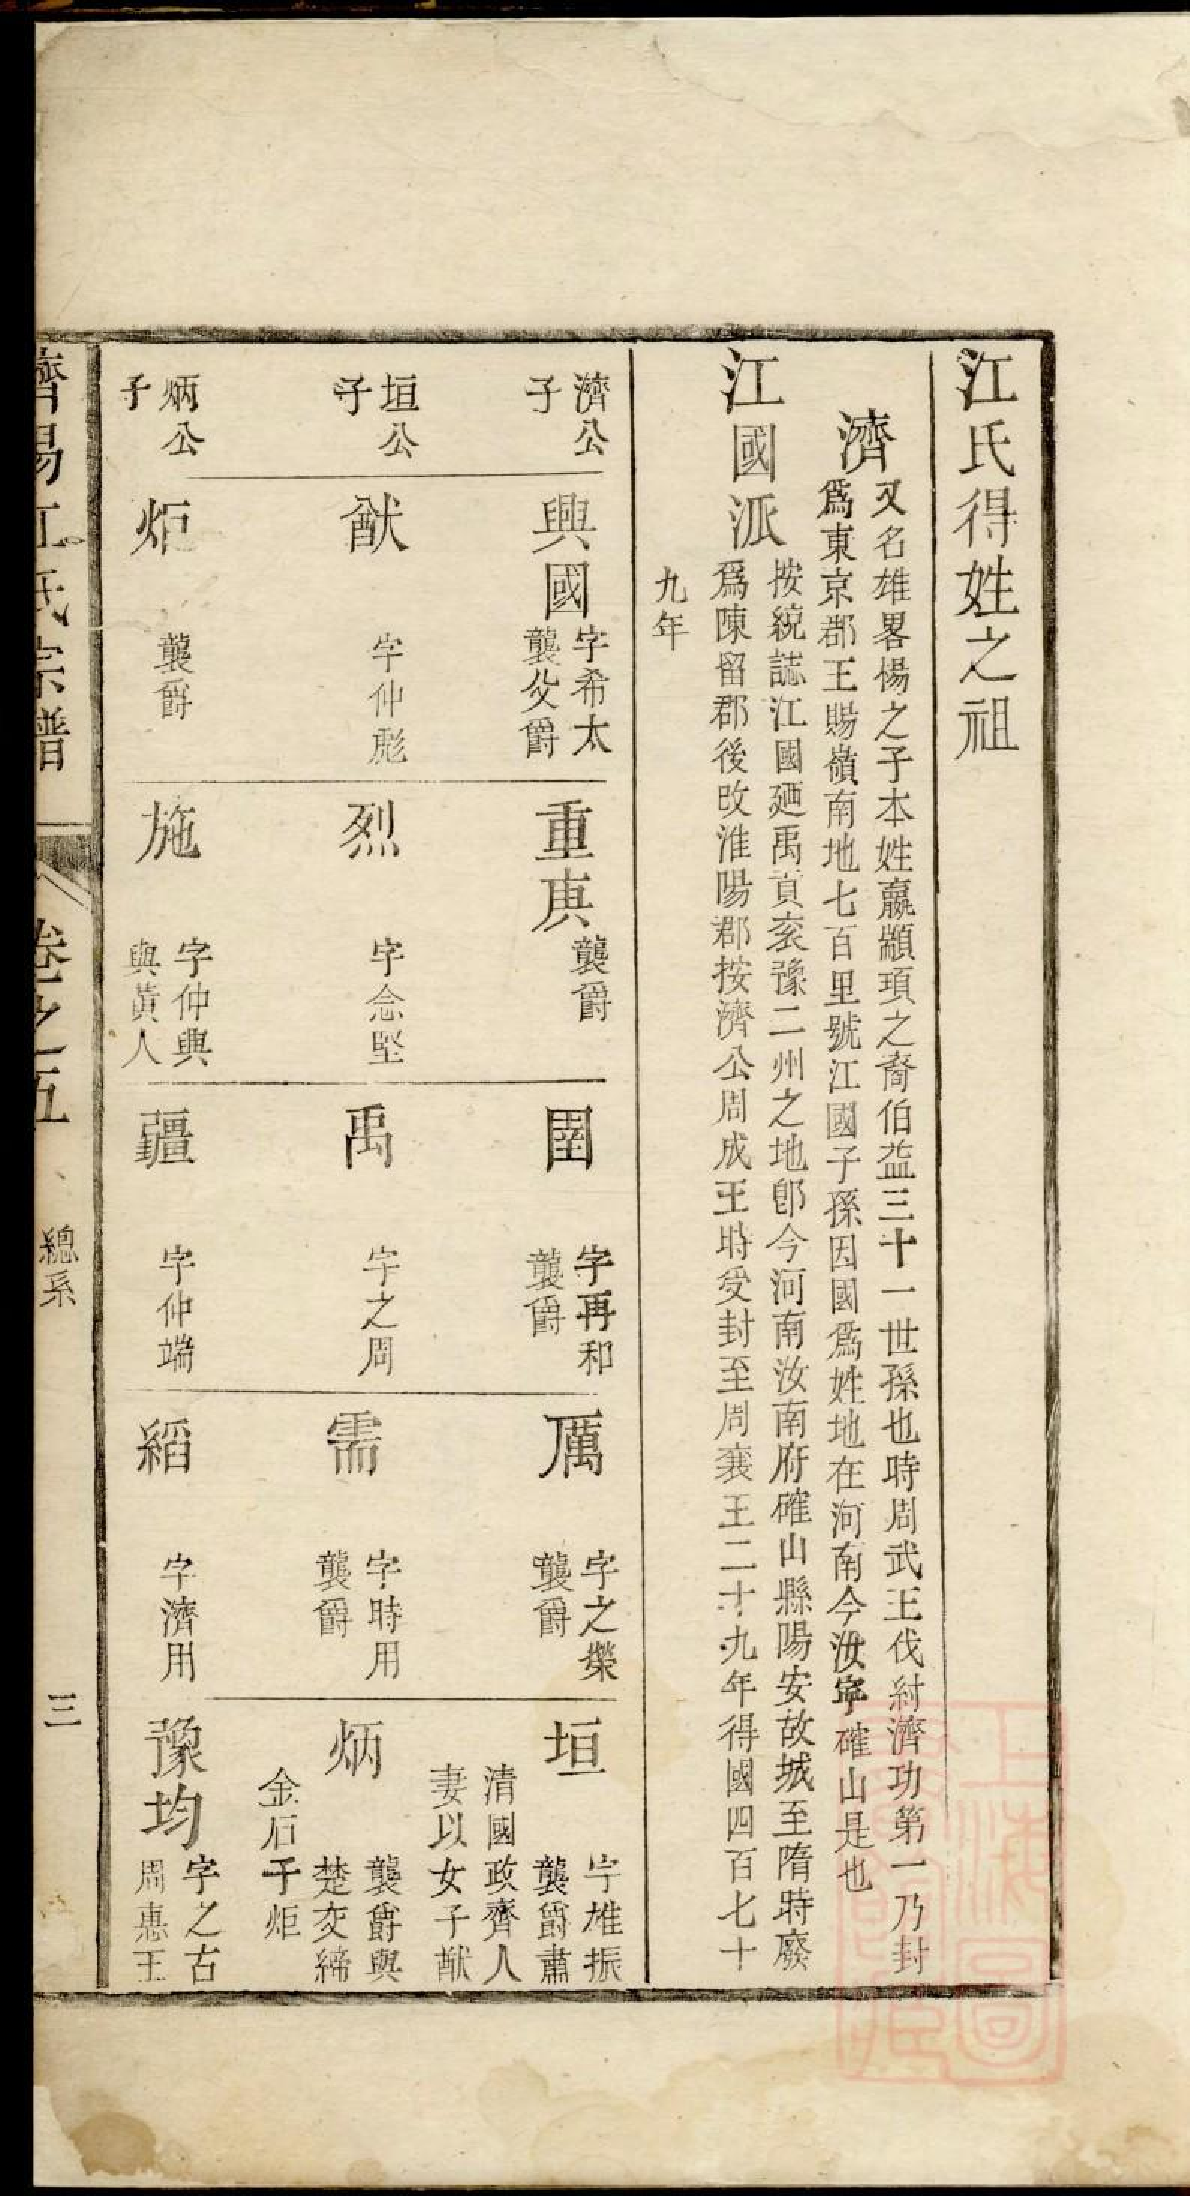 江氏得姓之祖
濟
又名雄畧楊之子本姓嬴顓頊之裔伯益三十一世孫也時周武王伐紂濟功第一乃封
爲東京郡王賜嶺南地七百里號江國子孫因國爲姓地在河南今汝寧確山是也
江國派
按統誌江國廼禹貢兗豫二州之地卽今河南汝南府確山縣陽安故城至隋時廢
爲陳留郡後改淮陽郡按濟公周成王時受封至周襄王二十九年得國四百七十
九年
濟公
子
興國
字希太
襲父爵
重庚
襲爵
圉
字再和
襲爵
厲
字之榮
襲爵
垣
字雄振
襲爵肅
清國政齊人
妻以女子猷
垣公
子
猷
字仲彪
烈
字念堅
禹
字之周
需
字時用
襲爵
炳
襲爵與
楚交締
金石
子炬
炳公
子
炬
襲爵
施
字仲興
與黃人
疆
字仲端
縚
字濟用
豫均
字之古
周惠王
濟陽江氏宗譜
卷之五
總系
三
上海圖